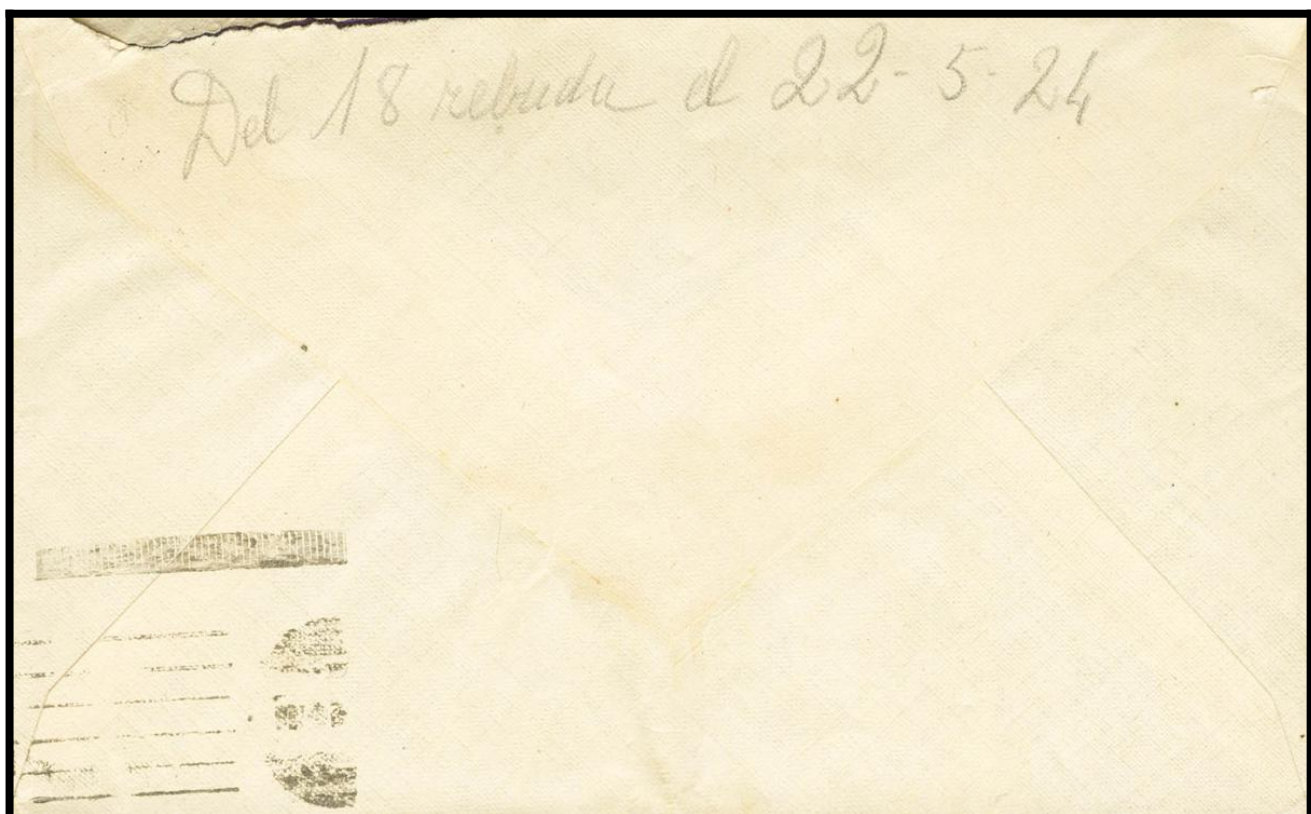 Del 18 rebuda el 22-5-24